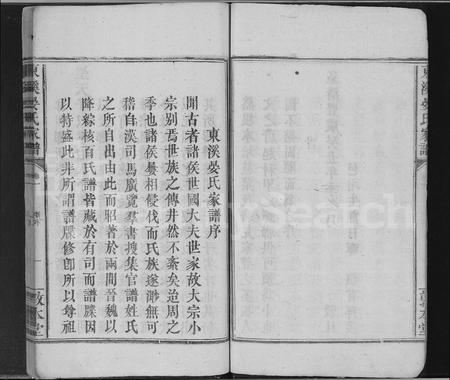 東溪晏氏家譜
敦本堂
東溪晏氏家譜序
聞古者諸侯世國大夫世家故大宗小
宗別焉世族之傳井然不紊矣迨周之
季也諸侯晏相侵伐而氏族遂渺無可
稽自漢司馬廣覽羣書搜集官譜姓氏
之所自出由此而昭著於兩間晉魏以
降綜核百氏譜皆藏於有司而譜牒因
以特盛此非所謂譜牒修卽所以尊祖
東溪晏氏家譜
敦本堂